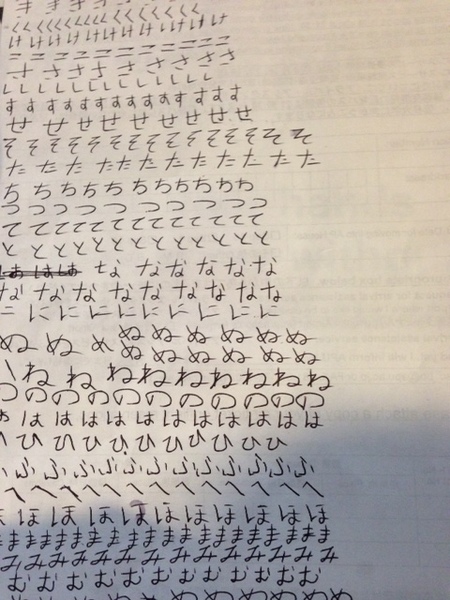 き き き き き き き
くくくくくくくくくくく
け け け け け け け け け け け
こ こ こ こ こ こ こ こ
さ さ さ さ さ さ さ
し し し し し し し し し し
す す す す す す す す す す す す
せ せ せ せ せ せ せ せ
そ そ そ そ そ そ そ そ そ そ そ そ
た た た た た た た た た た
ち ち ち ち ち ち ち ち ち ち
つ つ つ つ つ つ つ つ
て て て て て て て て て て て
と と と と と と と と と と
な な な な な な
な な な な な な な な
に に に に に に に に に
ぬ ぬ ぬ ぬ ぬ ぬ ぬ ぬ
ぬ ぬ ぬ ぬ ぬ ぬ
ね ね ね ね ね ね ね ね ね
の の の の の の の の の の
は は は は は は は は は は は
ひ ひ ひ ひ ひ ひ ひ ひ ひ
ふ ふ ふ ふ ふ ふ ふ ふ ふ ふ ふ ふ
へ へ へ へ へ へ へ へ へ へ へ
ほ ほ ほ ほ ほ ほ ほ ほ ほ ほ
ま ま ま ま ま ま ま ま ま ま ま ま ま
み み み み み み み み み み み み
む む む む む む む む む む
め め め め め め め め